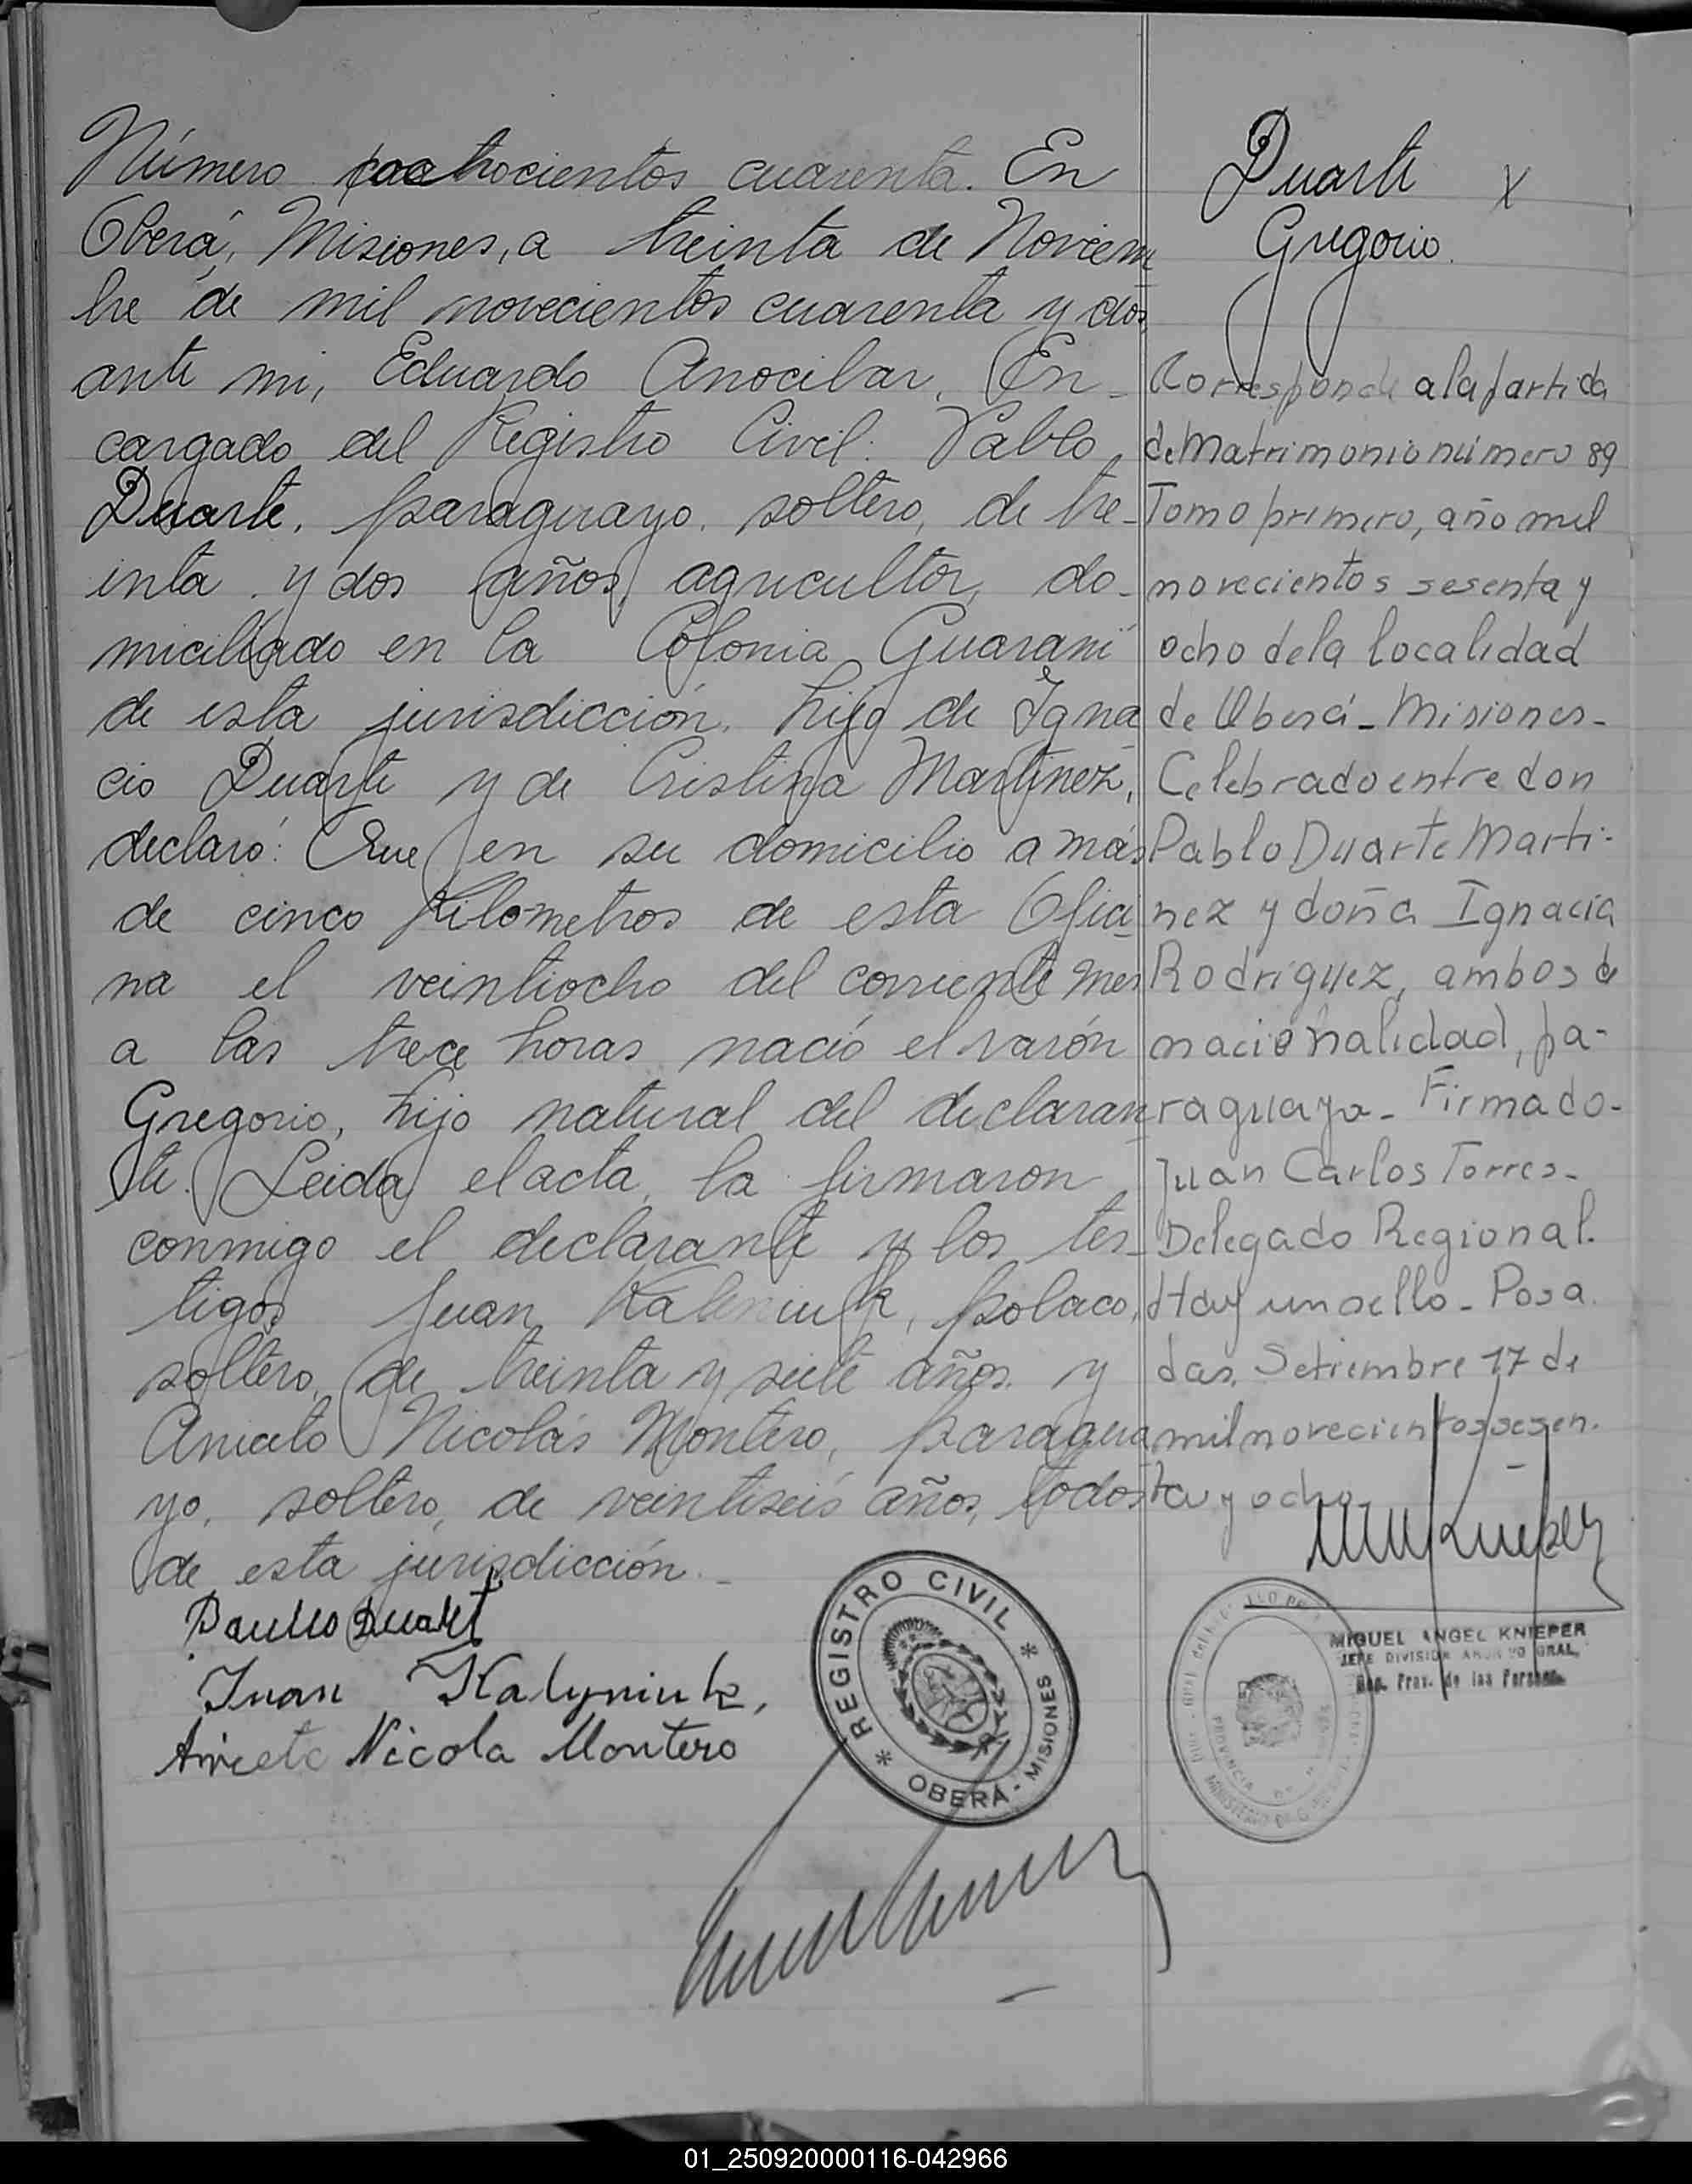 Número cuatrocientos cuarenta. En
Oberá, Misiones, a treinta de Noviem
bre de mil novecientos cuarenta y dos
ante mi, Eduardo Anocibar, En-
cargado del Registro Civil: Pablo
Duarte, paraguayo, soltero, de tre-
inta y dos años, agricultor, do-
miciliado en la Colonia Guaraní
de esta jurisdicción, hijo de Igna
cio Duarte y de Cristina Martinez,
declaró: Que en su domicilio a más
de cinco Kilometros de esta Ofici
na el veintiocho del corriente mes
a las trece horas nació el varón
Gregorio, hijo natural del declaran
te. Leida el acta, la firmaron
conmigo el declarante y los tes-
tigos Juan Kaleniuk, polaco,
soltero, de treinta y siete años y
Aniceto Nicolás Montero, paragua
yo, soltero, de veintiseis años, todos
de esta jurisdicción.-
Duarte
Juan Kalyniuk,
Aniceto Nicola Montero
REGISTRO CIVIL
OBERÁ - MISIONES
Duarte x
Gregorio.
Corresponde a la partida
de Matrimonio número 89
Tomo primero, año mil
novecientos sesenta y
ocho de la localidad
de Oberá - Misiones -
Celebrado entre don
Pablo Duarte Marti-
nez y doña Ignacia
Rodriguez, ambos de
nacionalidad, pa-
raguaya - Firmado -
Juan Carlos Torres -
Delegado Regional.
Hay un sello - Posa
das, Setiembre 17 de
mil novecientos sesen.
ta y ocho
MIGUEL ANGEL KNIEPER
JEFE DIVISION ARCHIVO GRAL.
Reg. Prov. de las Personas
PROVINCIA DE MISIONES
01_250920000116-042966